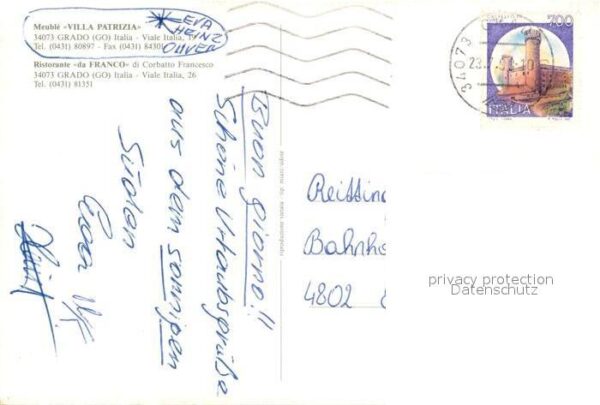 Meublé «VILLA PATRIZIA»
34073 GRADO (GO) Italia - Viale Italia,
Tel. (0431) 80897 - Fax (0431) 84301
EVA
HEINZ
OLIVER
Ristorante «da FRANCO» di Corbatto Francesco
34073 GRADO (GO) Italia - Viale Italia, 26
Tel. (0431) 81351
Buon giorno!!
Schöne Urlaubsgrüße
aus dem sonnigen
Süden
700
ITALIA
34073
Bahnho
4802
privacy protection
Datenschutz